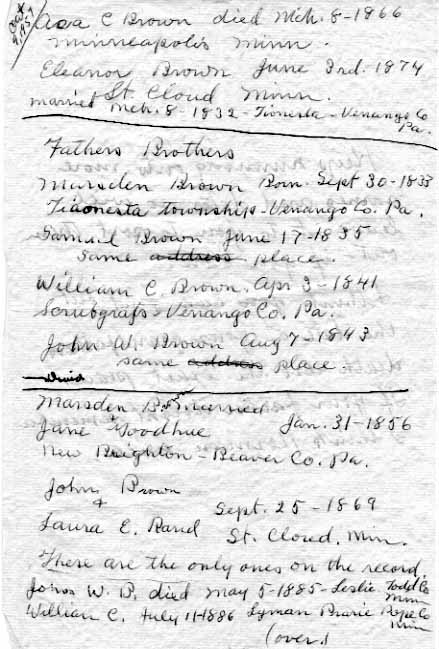 Asa C Brown died Mch. 8-1866
Minneapolis Minn.
Eleanor Brown June 3rd-1874
St. Cloud Minn.
married Mch. 8-1832-Tionesta-Venango Co
Pa.
Fathers Brothers
Marsden Brown Born Sept 30-1833
Tiaonesta township-Venango Co. Pa.
Samuel Brown June 17-1835
same address place.
William C. Brown. Apr 3-1841
Scrubgrafs-Venango Co. Pa.
John W. Brown Aug 7-1843
same address place.
David
Marsden B. married
Jane Goodhue Jan. 31-1856
New Brighton-Beaver Co. Pa.
John Brown
&
Sept. 25-1869
Laura E. Rand
St. Cloud, Min.
These are the only ones on the record.
John W. B. died May 5-1885-Leslie. Todd Co
Minn
William C. July 11-1886 Lyman Prarie Pope Co
Minn
(over)